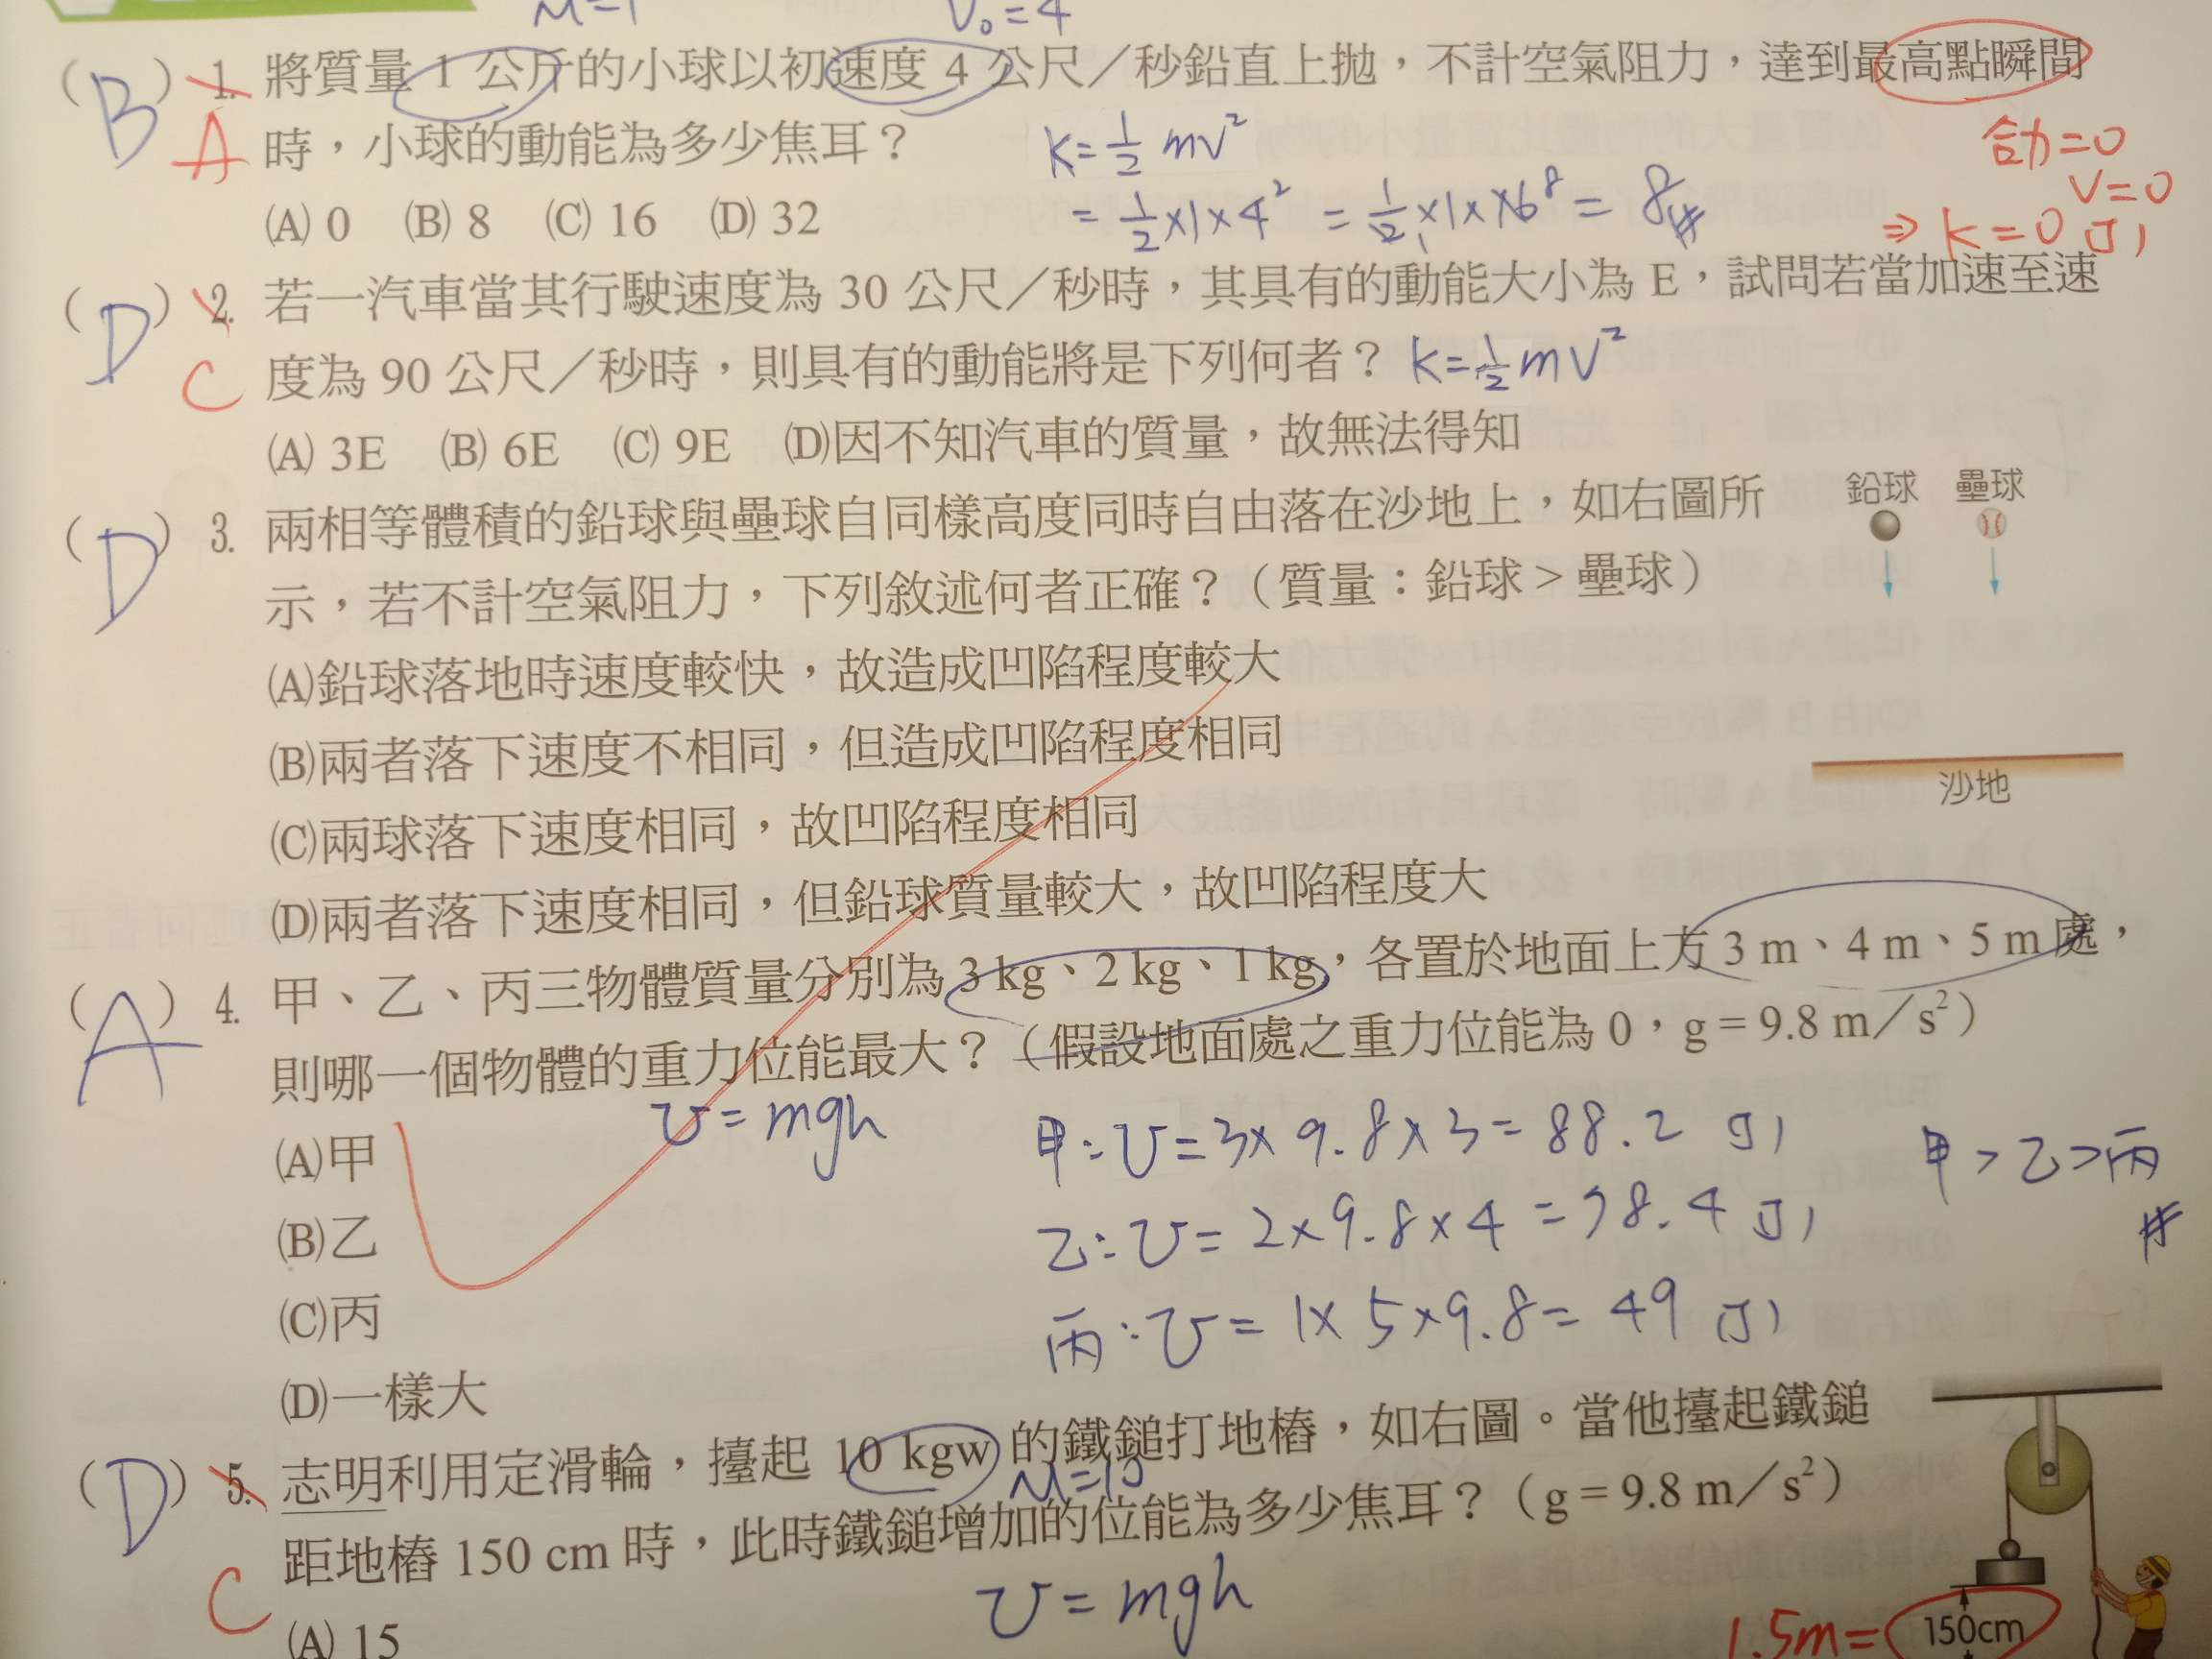 M=1 V₀=4
(B) 1. 將質量 1 公斤的小球以初速度 4 公尺／秒鉛直上拋，不計空氣阻力，達到最高點瞬間
A 時，小球的動能為多少焦耳？ K=½mv² 合力=0
V=0
(A) 0 (B) 8 (C) 16 (D) 32 =½×1×4² =½×1×16 8 = 8# ⇒K=0(J)
(D) 2. 若一汽車當其行駛速度為 30 公尺／秒時，其具有的動能大小為 E，試問若當加速至速
C 度為 90 公尺／秒時，則具有的動能將是下列何者？ K=½mV²
(A) 3E (B) 6E (C) 9E (D)因不知汽車的質量，故無法得知
(D) 3. 兩相等體積的鉛球與壘球自同樣高度同時自由落在沙地上，如右圖所
鉛球 壘球
示，若不計空氣阻力，下列敘述何者正確？（質量：鉛球＞壘球）
(A)鉛球落地時速度較快，故造成凹陷程度較大
(B)兩者落下速度不相同，但造成凹陷程度相同
沙地
(C)兩球落下速度相同，故凹陷程度相同
(D)兩者落下速度相同，但鉛球質量較大，故凹陷程度大
(A) 4. 甲、乙、丙三物體質量分別為 3 kg、2 kg、1 kg，各置於地面上方 3 m、4 m、5 m 處，
則哪一個物體的重力位能最大？（假設地面處之重力位能為 0，g = 9.8 m／s²）
U=mgh
(A)甲 甲:U=3×9.8×3=88.2 (J) 甲>乙>丙#
(B)乙 乙:U=2×9.8×4=78.4 (J)
(C)丙 丙:U=1×5×9.8=49 (J)
(D)一樣大
(D) 5. 志明利用定滑輪，擡起 10 kgw 的鐵鎚打地樁，如右圖。當他擡起鐵鎚
M=10
C 距地樁 150 cm 時，此時鐵鎚增加的位能為多少焦耳？（g = 9.8 m／s²）
U=mgh
(A) 15 1.5m= 150cm